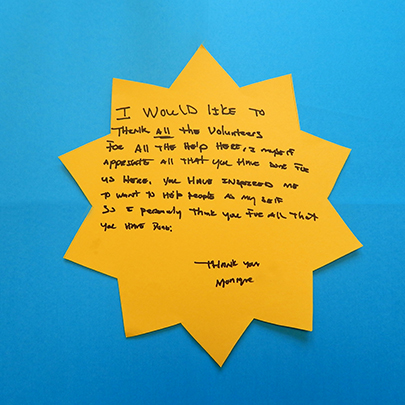 I WOULD LIKE TO
THANK ALL the Volunteers
FOR ALL THE HELP HERE, I myself
APPRESIATE ALL THAT YOU HAVE DONE FOR
US HERE. YOU HAVE INSPIRED ME
TO WANT TO HELP PEOPLE AS MY SELF
SO I PERSONLY THANK YOU FOR ALL THAT
YOU HAVE DONE.
THANK YOU
MONIQUE